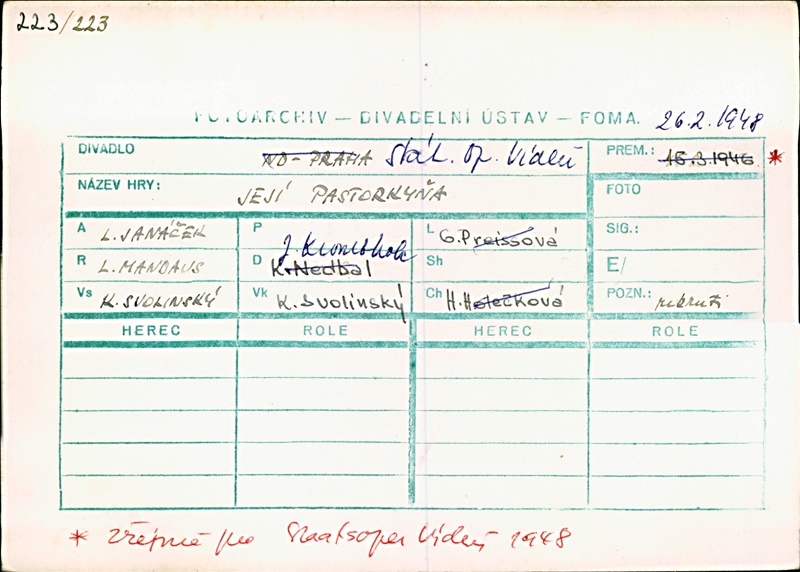 223/223
FOTOARCHIV — DIVADELNÍ ÚSTAV — FOMA. 26.2.1948
DIVADLO ND - PRAHA Stát. Op. Vídeň PREM.: 15.3.1946 *
NÁZEV HRY: JEJÍ PASTORKYŇA FOTO
A L. JANÁČEK P L G. Preissová SIG.:
R L. MANDAUS D K. Nedbal J. Sh E/
Vs K. SVOLINSKÝ Vk K. Svolinský Ch H. Holečková POZN.: rekruti
HEREC ROLE HEREC ROLE
* zřejmě pro Staatsoper Vídeň 1948